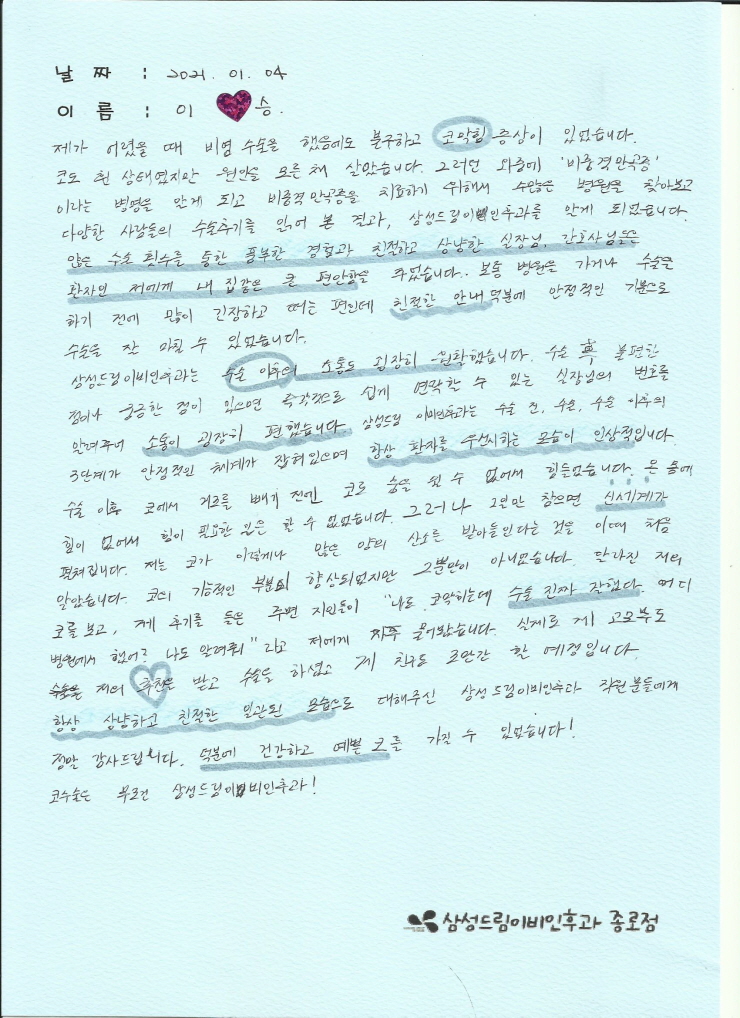 날 짜 : 2021. 01. 04
이 름 : 이 승.
제가 어렸을 때 비염 수술을 했음에도 불구하고 코막힘 증상이 있었습니다.
코도 휜 상태였지만 원인을 모른 채 살았습니다. 그러던 와중에 '비중격만곡증'
이라는 병명을 알게 되고 비중격만곡증을 치료하기 위해서 수많은 병원을 찾아보고
다양한 사람들의 수술후기를 읽어 본 결과, 삼성드림이비인후과를 알게 되었습니다.
많은 수술 횟수를 통한 풍부한 경험과 친절하고 상냥한 실장님, 간호사님들은
환자인 저에게 내 집같은 큰 편안함을 주었습니다. 보통 병원을 가거나 수술을
하기 전에 많이 긴장하고 떠는 편인데 친절한 안내 덕분에 안정적인 기분으로
수술을 잘 마칠 수 있었습니다.
삼성드림이비인후과는 수술 이후의 소통도 굉장히 원활했습니다. 수술 후 불편한
점이나 궁금한 점이 있으면 즉각적으로 쉽게 연락할 수 있는 실장님의 번호를
알려주셔 소통이 굉장히 편했습니다. 삼성드림 이비인후과는 수술 전, 수술, 수술 이후의
3단계가 안정적인 체계가 잡혀있으며 항상 환자를 우선시하는 모습이 인상적입니다.
수술 이후 코에서 거즈를 빼기 전엔 코로 숨을 쉴 수 없어서 힘들었습니다. 온 몸에
힘이 없어서 힘이 필요한 일은 할 수 없었습니다. 그러나 2일만 참으면 신세계가
펼쳐집니다. 저는 코가 이렇게나 많은 양의 산소를 받아들인다는 것을 이때 처음
알았습니다. 코의 기능적인 부분이 향상되었지만 그뿐만이 아니었습니다. 달라진 저의
코를 보고, 제 후기를 들은 주변 지인들이 "나도 코막히는데 수술 진짜 잘했다. 어디
병원에서 했어? 나도 알려줘" 라고 저에게 자주 물어봤습니다. 실제로 제 고모부도
저의 추천을 받고 수술을 하셨고 제 친구도 조만간 할 예정입니다.
항상 상냥하고 친절한 일관된 모습으로 대해주신 삼성드림이비인후과 직원분들에게
정말 감사드립니다. 덕분에 건강하고 예쁜 코를 가질 수 있었습니다!
코수술은 무조건 삼성드림이비인후과!
삼성드림이비인후과 종로점